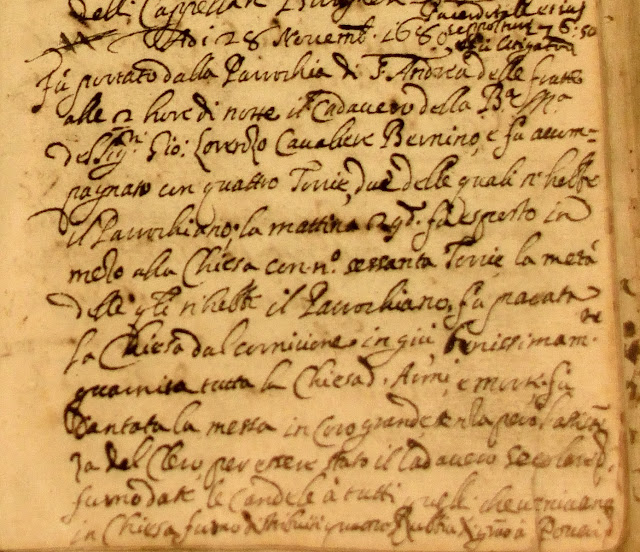 delli Cappellani
Adi 28 Novemb. 1680
Fù portato dalla Parrochia di S. Andrea delle fratte
alle 2 hore di notte il Cadavero della B.a
del Sig.r Gio: Lorenzo Cavaliere Bernino, e fu accom=
pagnato con quattro Torcie, due delle quali n'hebbe
il Parrochiano, la mattina fù esposto in
mezo alla Chiesa con n.o sessanta Torcie la metà
delle q.li n'hebbe il Parrochiano, fù parata
la Chiesa dal cornicione in giù, benissimam.te
guarnita tutta la Chiesa d'Armi, e morte, fù
Cantata la messa in Coro grande, senza però
del Clero per essere stato il Cadavero
furno date le Candele à tutti quelli che venivano
in Chiesa furno distribuiti quattro Rubbia à Poveri